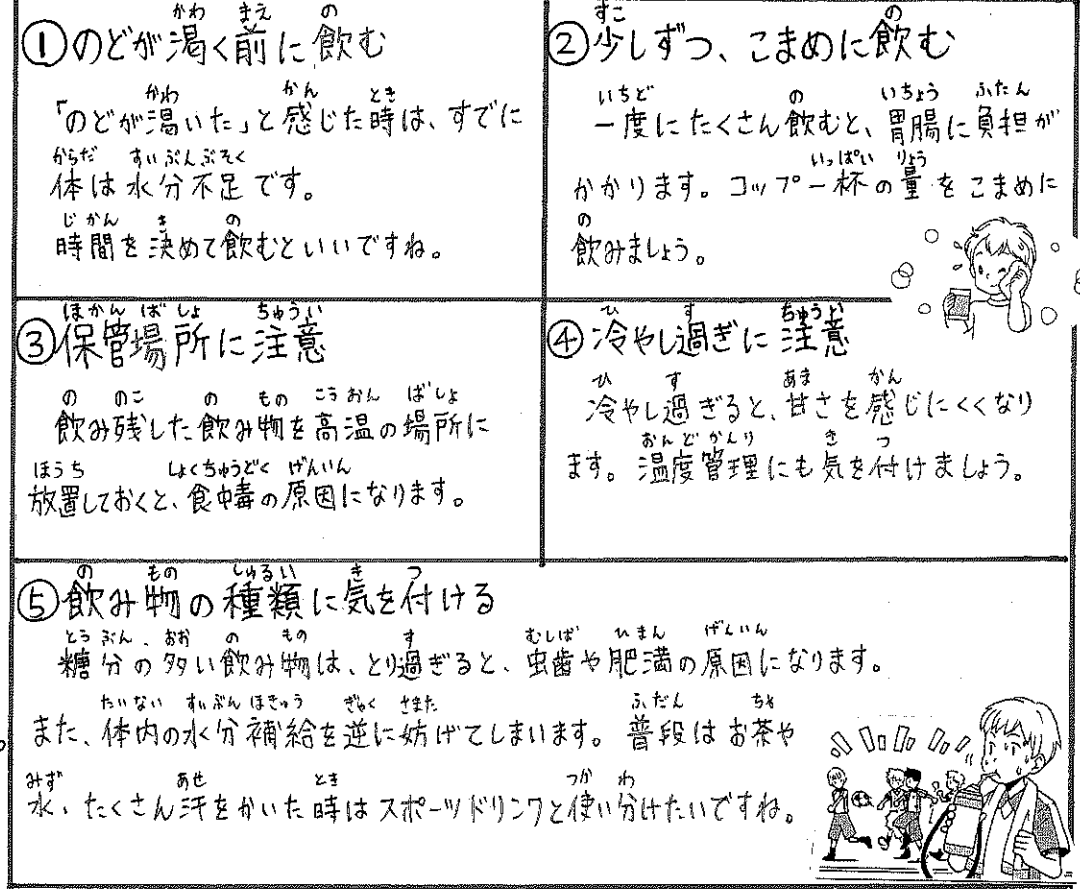 ①のどが渇く前に飲む
「のどが渇いた」と感じた時は、すでに
体は水分不足です。
時間を決めて飲むといいですね。
②少しずつ、こまめに飲む
一度にたくさん飲むと、胃腸に負担が
かかります。コップ一杯の量をこまめに
飲みましょう。
③保管場所に注意
飲み残した飲み物を高温の場所に
放置しておくと、食中毒の原因になります。
④冷やし過ぎに注意
冷やし過ぎると、甘さを感じにくくなり
ます。温度管理にも気を付けましょう。
⑤飲み物の種類に気を付ける
糖分の多い飲み物は、とり過ぎると、虫歯や肥満の原因になります。
また、体内の水分補給を逆に妨げてしまいます。普段はお茶や
水、たくさん汗をかいた時はスポーツドリンクと使い分けたいですね。